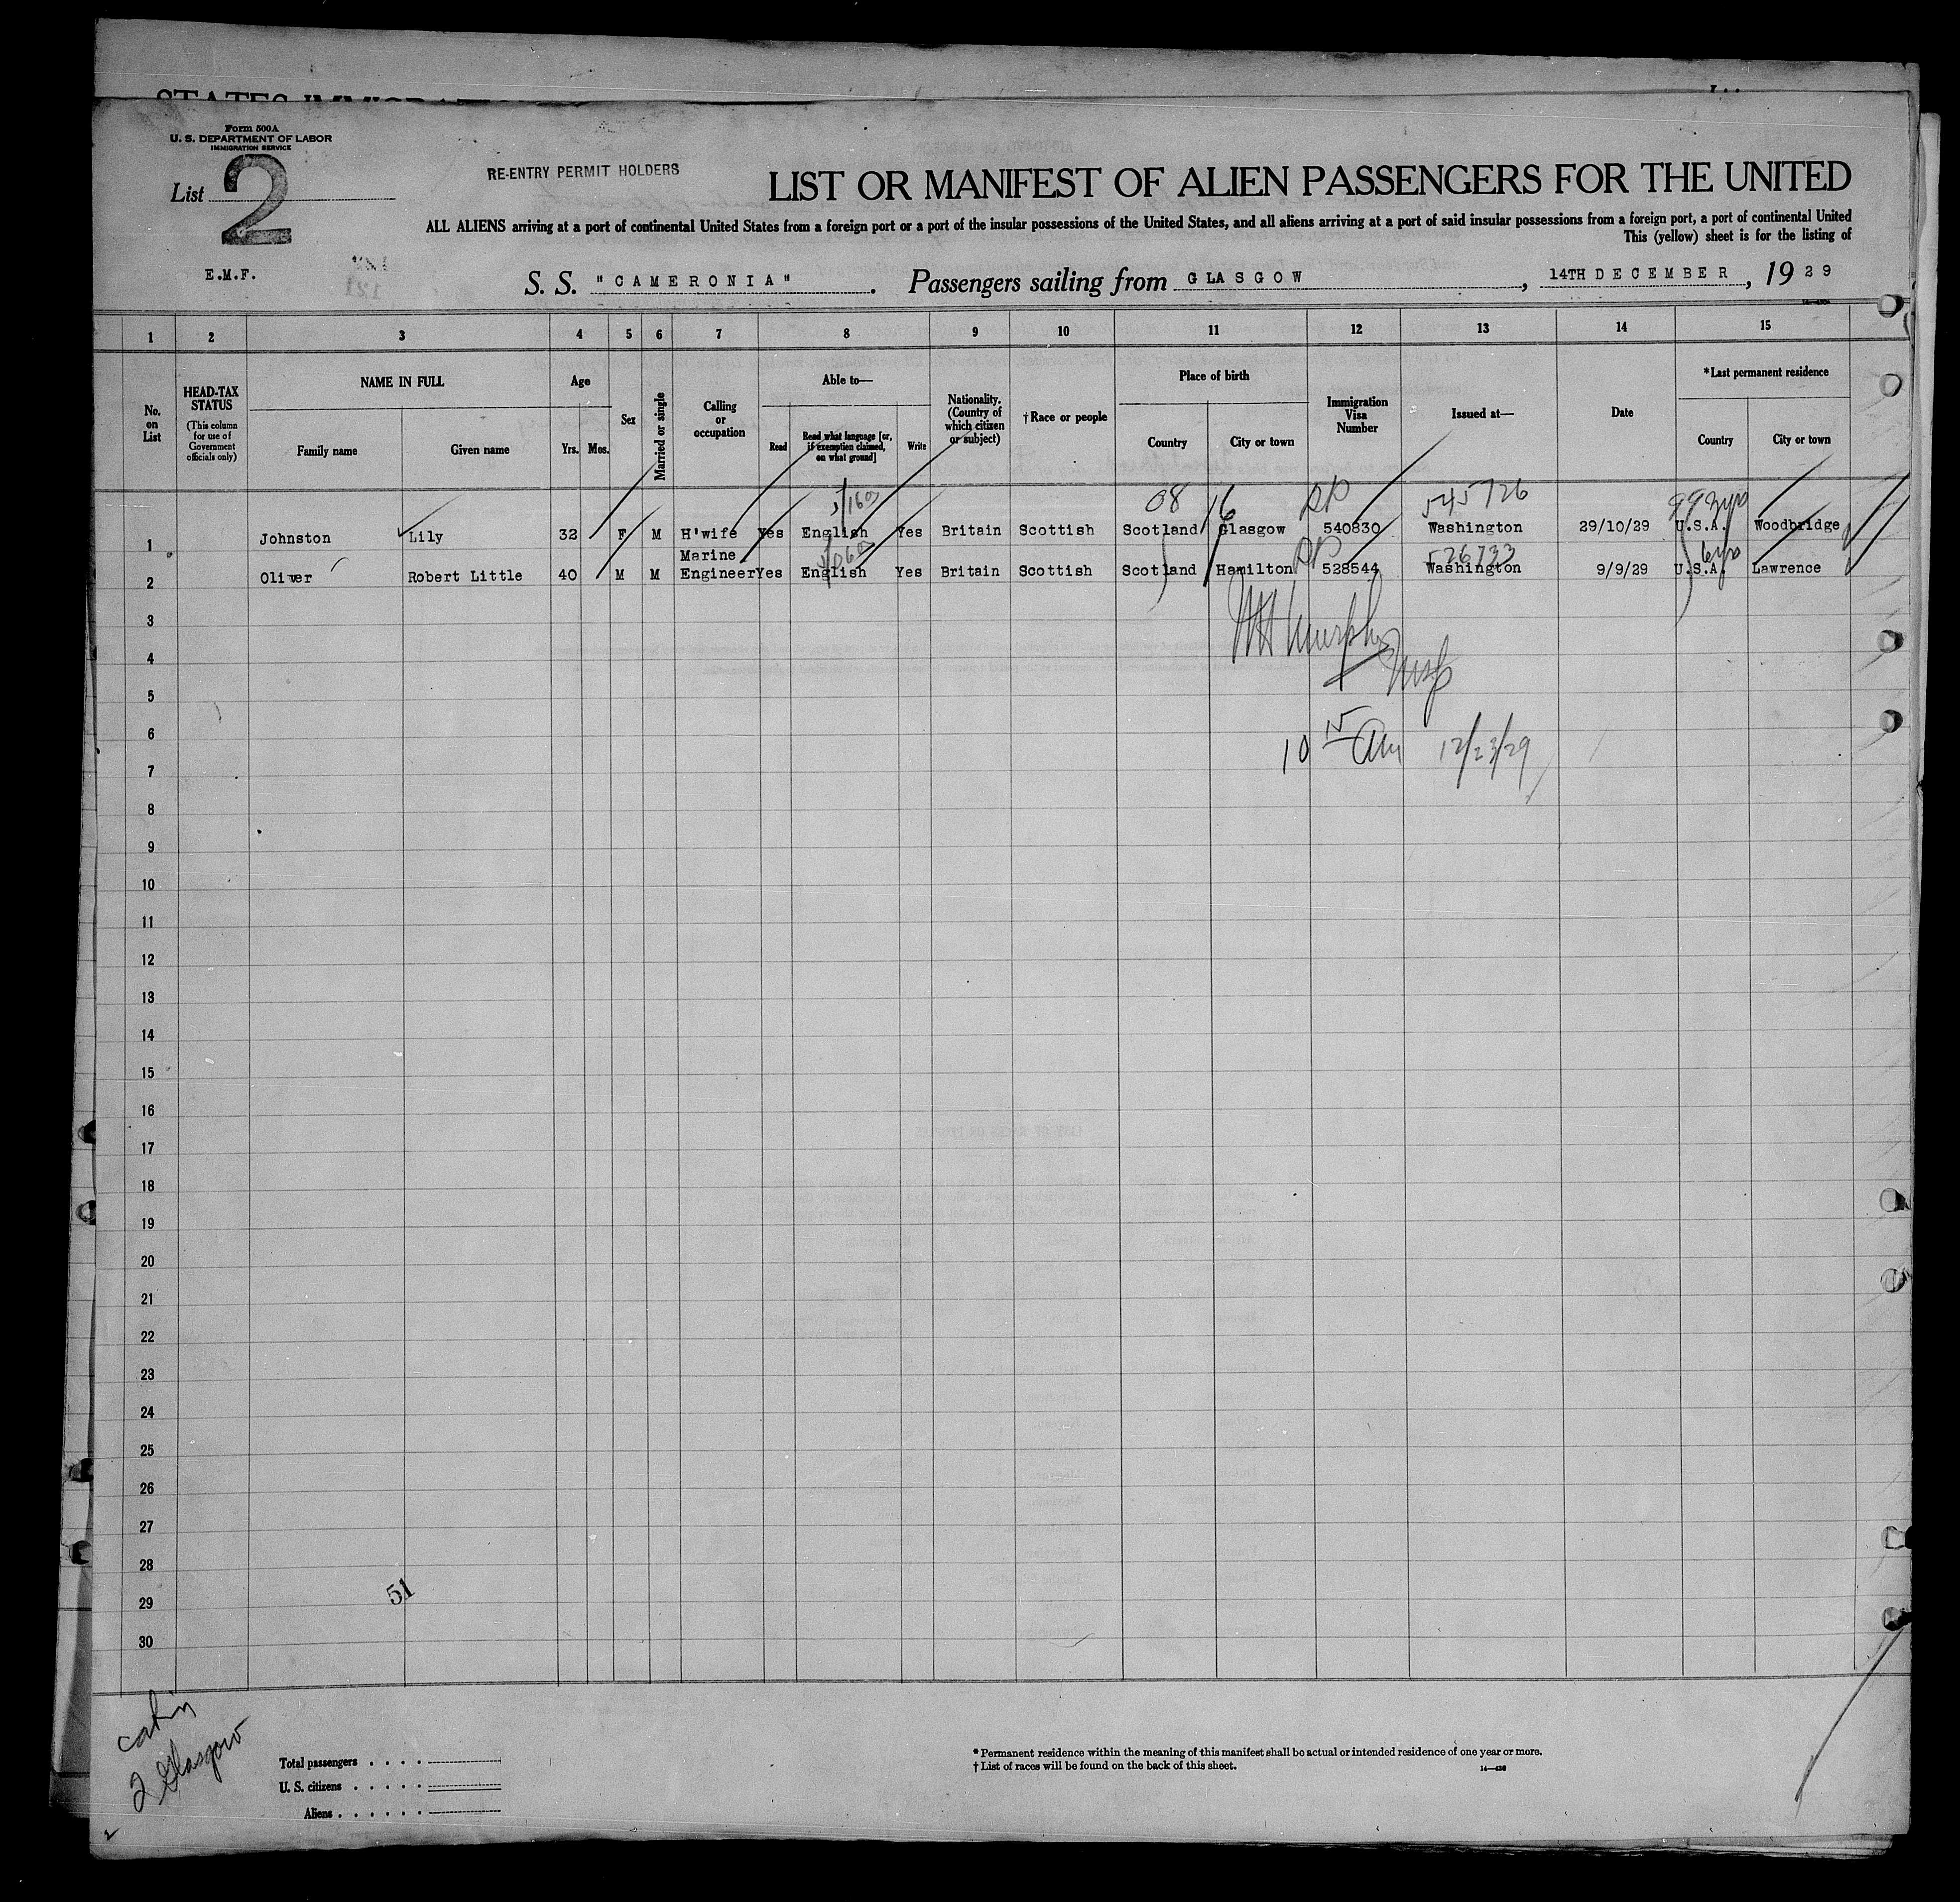 STATES IMMIGRAT
Form 500A
U. S. DEPARTMENT OF LABOR
IMMIGRATION SERVICE
List 2
RE-ENTRY PERMIT HOLDERS
LIST OR MANIFEST OF ALIEN PASSENGERS FOR THE UNITED
ALL ALIENS arriving at a port of continental United States from a foreign port or a port of the insular possessions of the United States, and all aliens arriving at a port of said insular possessions from a foreign port, a port of continental United
This (yellow) sheet is for the listing of
E.M.F.
121
S. S. "CAMERONIA". Passengers sailing from GLASGOW, 14TH DECEMBER, 1929
1 2 3 4 5 6 7 8 9 10 11 12 13 14 15
No. on List
HEAD-TAX STATUS (This column for use of Government officials only)
NAME IN FULL
Family name Given name
Age
Yrs. Mos.
Sex
Married or single
Calling or occupation
Able to—
Read Read what language [or, if exemption claimed, on what ground] Write
Nationality. (Country of which citizen or subject)
†Race or people
Place of birth
Country City or town
Immigration Visa Number
Issued at—
Date
*Last permanent residence
Country City or town
5/160 08 16 RP 545726 99 3yrs
1 Johnston Lily 32 F M H'wife Yes English Yes Britain Scottish Scotland Glasgow 540830 Washington 29/10/29 U.S.A. Woodbridge
RP 526733 6yrs
2 Oliver Robert Little 40 M M Marine Engineer Yes English Yes Britain Scottish Scotland Hamilton 528544 Washington 9/9/29 U.S.A. Lawrence
3
WH Murphy
4
Insp
5
6
10 15 Am 12/23/29
7
8
9
10
11
12
13
14
15
16
17
18
19
20
21
22
23
24
25
26
27
28
29
51
30
cabin
2 Glasgow
Total passengers . . . .
U. S. citizens . . . . .
Aliens . . . . . .
* Permanent residence within the meaning of this manifest shall be actual or intended residence of one year or more.
† List of races will be found on the back of this sheet.
14—430
2